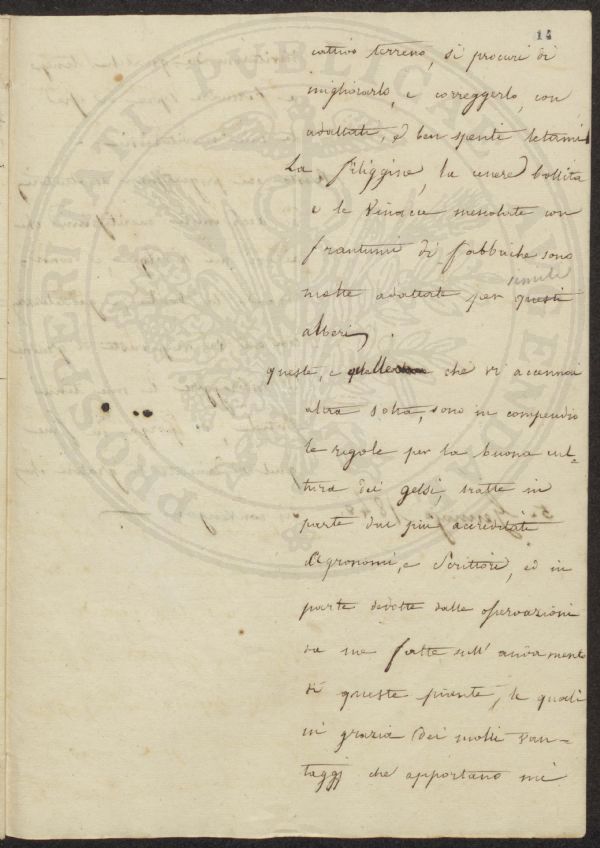 14
cattivo terreno, si procuri di
migliorarlo, e correggerlo, con
adattati, e ben spenti letami
La filiggine, la cenere bollita
e le vinacce mescolate con
frantumi di fabbriche sono
molto adattate per questi
simili
alberi,
queste, e quelle che vi accennai
altra volta, sono in compendio
le regole per la buona cul=
tura dei gelsi, tratte in
parte dai più accreditati
Agronomi, e Scrittori, ed in
parte dedotte dalle osservazioni
da me fatte sull'andamento
di queste piante, le quali
in grazia dei molti van=
taggj che apportano mi
PROSPERITATI PUBLICAE